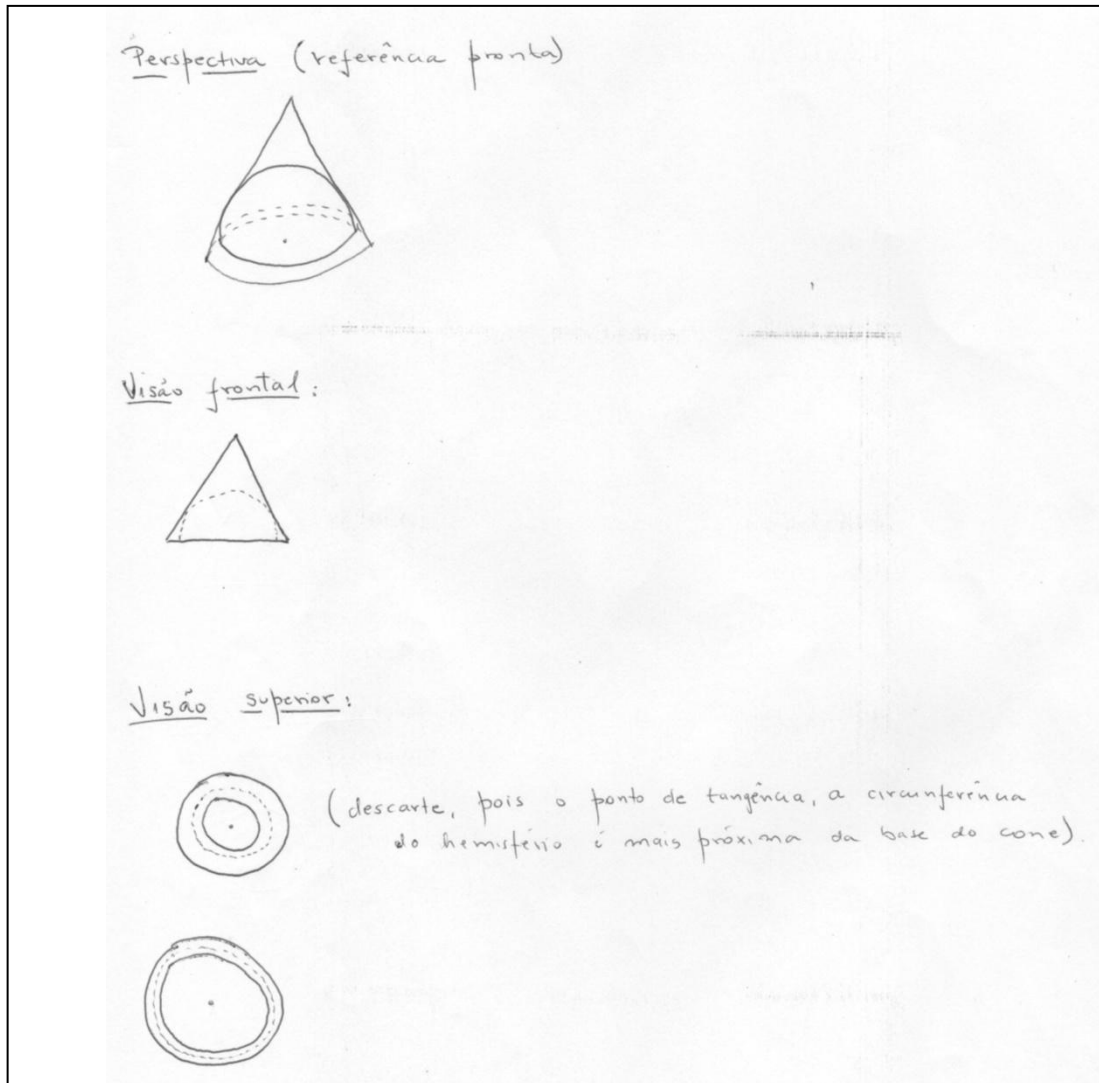 Perspectiva (referência pronta)
Visão frontal:
Visão superior:
(descarte, pois o ponto de tangência, a circunferência
do hemisfério é mais próxima da base do cone).